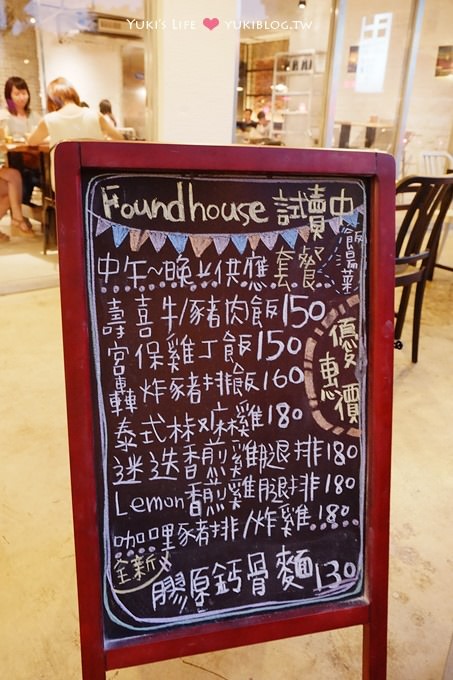 YUKI'S LIFE ♥ YUKIBLOG.TW
Foundhouse 試賣中
中午~晚上供應套餐
飯湯菜
壽喜牛/豬肉飯150
宮保雞丁飯150
轟炸豬排飯160
泰式椒麻雞180
迷迭香煎雞腿排180
Lemon香煎雞腿排180
咖哩豬排/炸雞180
優惠價
全新
膠原鈣骨麵130